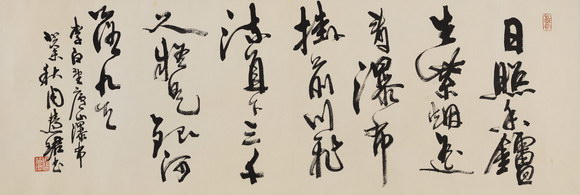 日照香鑪
生紫烟遥
看瀑布
掛前川飛
流直下三千
尺疑是銀河
落九天
李白望庐山瀑布
癸未秋周慧珺书